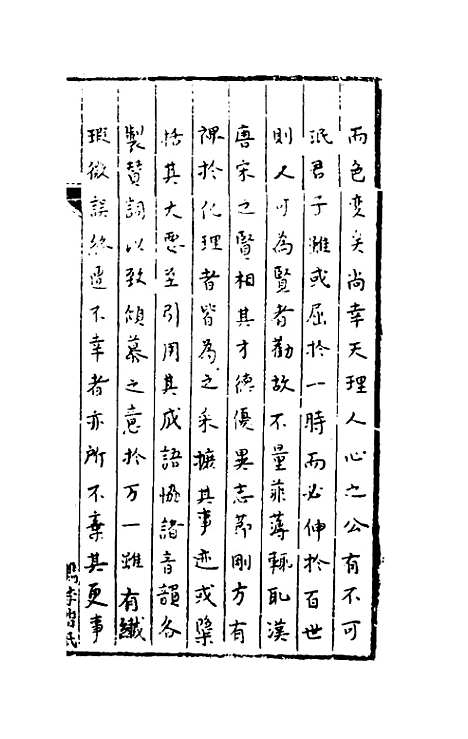 而色变矣尚幸天理人心之公有不可
泯君子雖或屈於一時而必伸於百世
則人可為賢者勸故不量菲薄輒取漢
唐宋之賢相其才德優異志節剛方有
裨於化理者皆為之采摭其事迹或檃
括其大要至引用其成語協諸音韻各
製贊詞以致傾慕之意於万一雖有纖
瑕微誤終遭不幸者亦所不棄其更事
李習氏